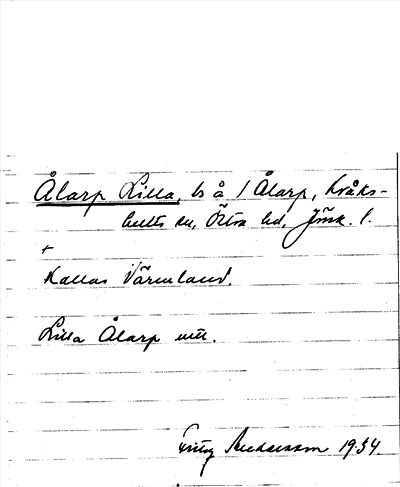 Ålarp Lilla, ls å 1 Ålarp, Kråks-
hults sn, Östra hd, Jönk. l.
+
Kallas Värmland.
Lilla Ålarp utt.
1934.